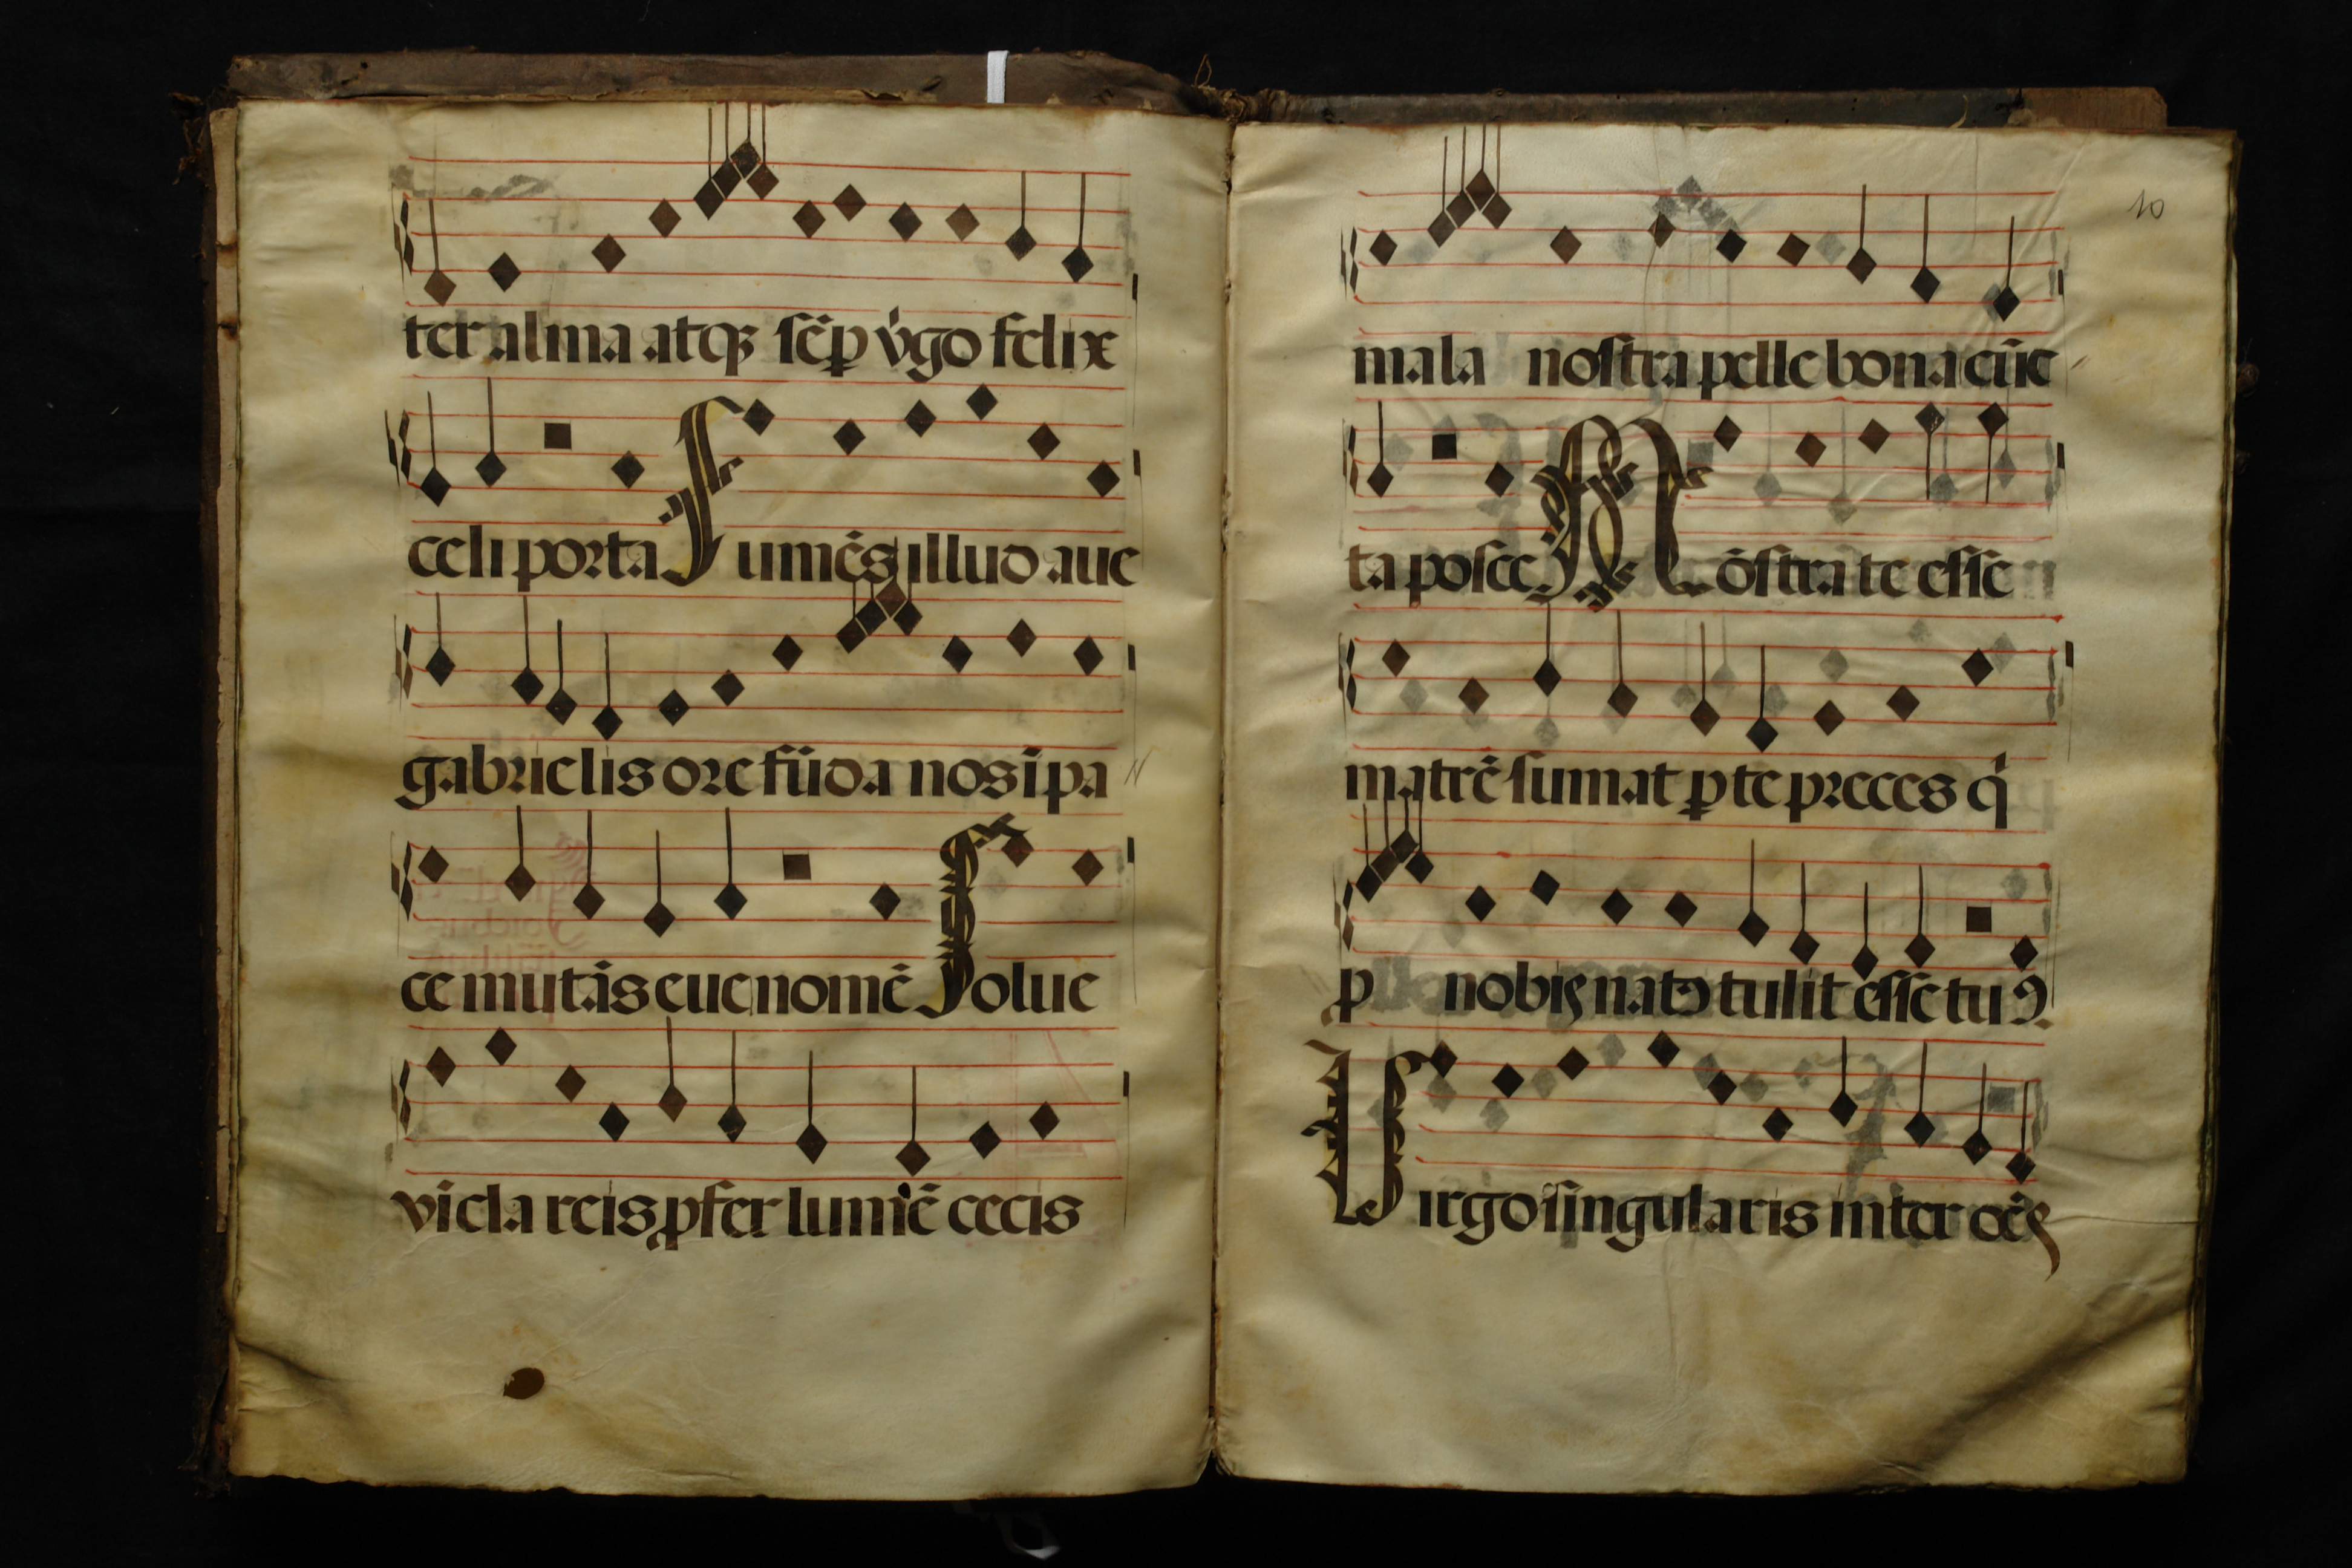 ter alma atqꝫ sēp v̓go felix
celi porta Sumēs illud aue
gabrielis ore fūda nos ī pa
ce mutās eue nomē Solue
vīcla reis ꝓfer lumē cecis
10
mala nostra pelle bona cūc
ta posce Nostra te esse
matrē sumat ꝑ te preces q̇
ꝑ nobis natꝰ tulit esse tuꝰ
Virgo singularis inter oēs